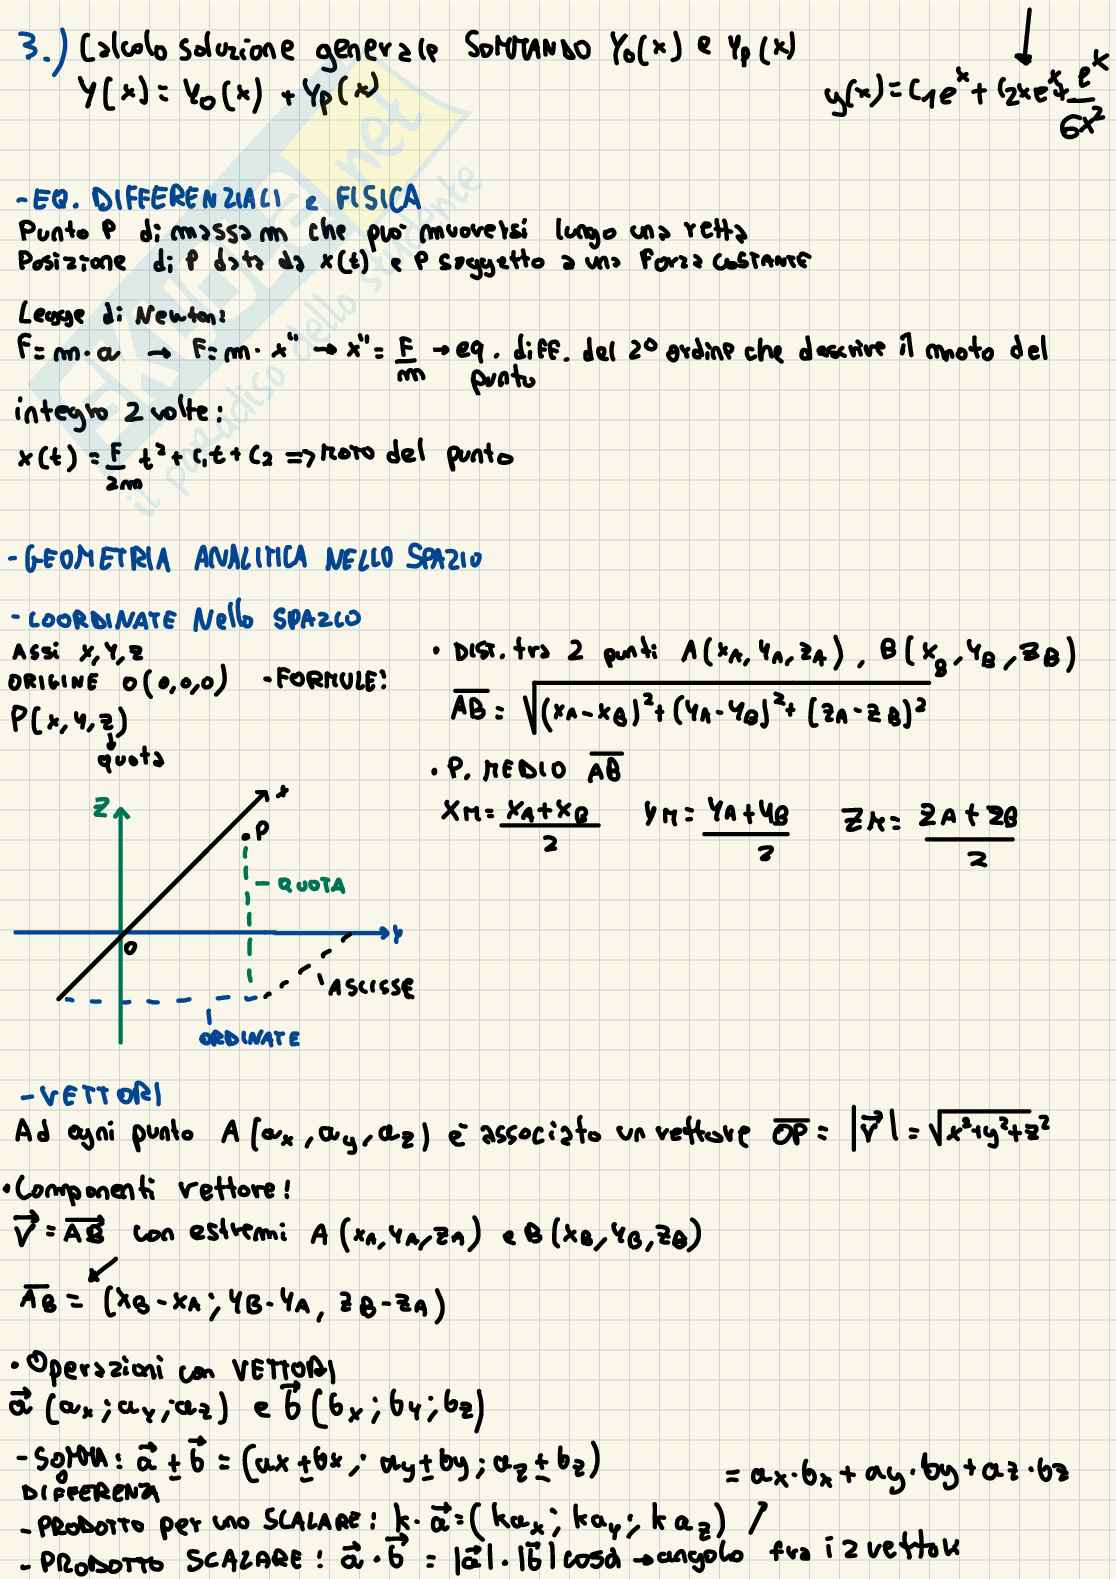 3.) Calcolo soluzione generale SOMMANDO Y₀(x) e Yₚ(x)
Y(x) = Y₀(x) + Yₚ(x)
y(x) = C₁eˣ + C₂xeˣ + eˣ/6x²
- EQ. DIFFERENZIALI e FISICA
Punto P di massa m che può muoversi lungo una retta
Posizione di P data da x(t) e P soggetto a una Forza COSTANTE
Legge di Newton:
F = m · a → F = m · x'' → x'' = F/m → eq. diff. del 2° ordine che descrive il moto del
punto
integro 2 volte:
x(t) = F/2m t² + c₁t + c₂ => moto del punto
- GEOMETRIA ANALITICA NELLO SPAZIO
- COORDINATE Nello SPAZIO
ASSi X, Y, Z
ORIGINE O(0,0,0) - FORMULE:
P(x, y, z)
quota
• DIST. tra 2 punti A(xA, yA, zA), B(xB, yB, zB)
AB = √(xA - xB)² + (yA - yB)² + (zA - zB)²
• P. MEDIO AB
xM = xA + xB / 2 yM = yA + yB / 2 zM = zA + zB / 2
Z
x
P
- QUOTA
O
y
ASCISSE
ORDINATE
- VETTORI
Ad ogni punto A(ax, ay, az) è associato un vettore OP = |v| = √x² + y² + z²
• Componenti vettore:
v = AB con estremi A(xA, yA, zA) e B(xB, yB, zB)
AB = (xB - xA; yB - yA, zB - zA)
• Operazioni con VETTORI
a (ax; ay; az) e b (bx; by; bz)
- SOMMA: a ± b = (ax ± bx; ay ± by; az ± bz)
DIFFERENZA
= ax · bx + ay · by + az · bz
- PRODOTTO per uno SCALARE: k · a = (kax; kay; kaz)
- PRODOTTO SCALARE: a · b = |a| · |b| cosα → angolo fra i 2 vettori
EKUOLA.net
il paradiso dello studente